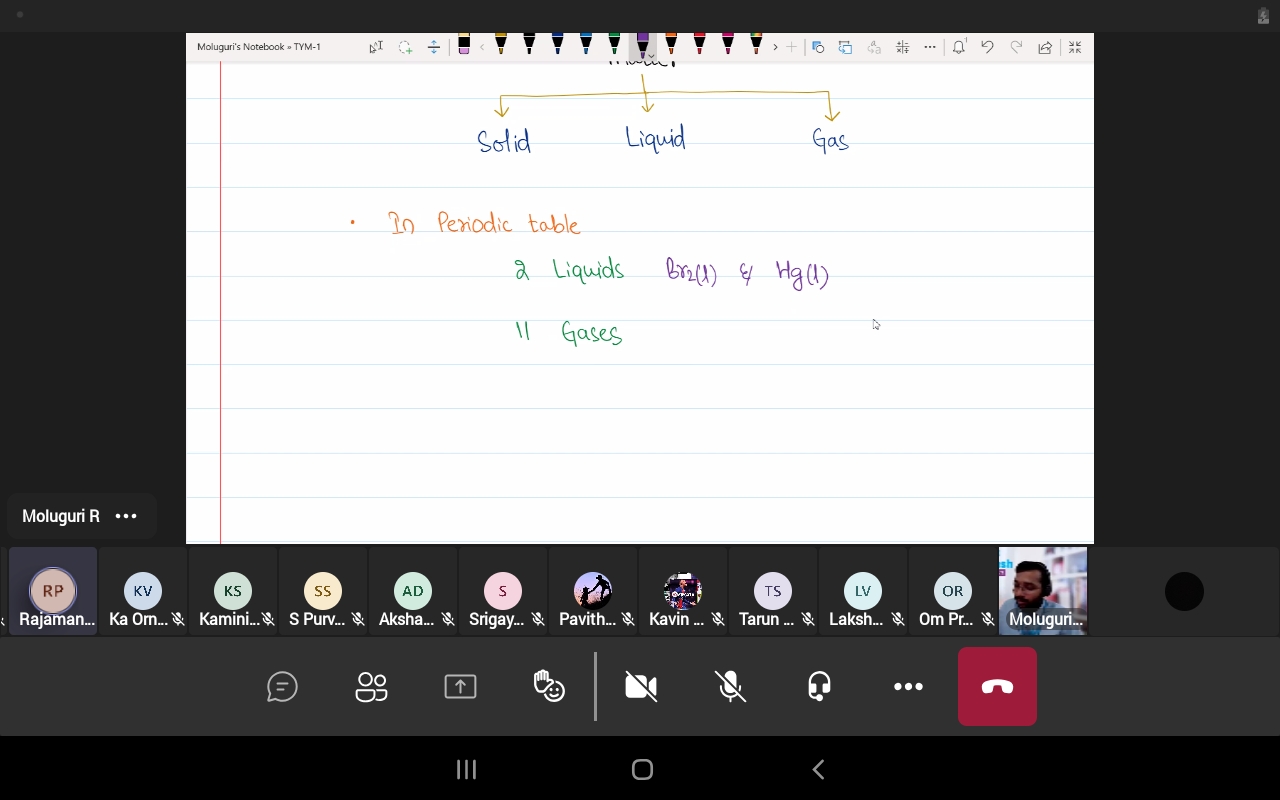 Moluguri's Notebook » TYM-1
Solid Liquid Gas
• In Periodic table
2 Liquids Br2(l) & Hg(l)
11 Gases
Moluguri R •••
RP KV KS SS AD S TS LV OR
Rajaman... Ka Orn... Kamini... S Purv... Aksha... Srigay... Pavith... Kavin ... Tarun ... Laksh... Om Pr... Moluguri...